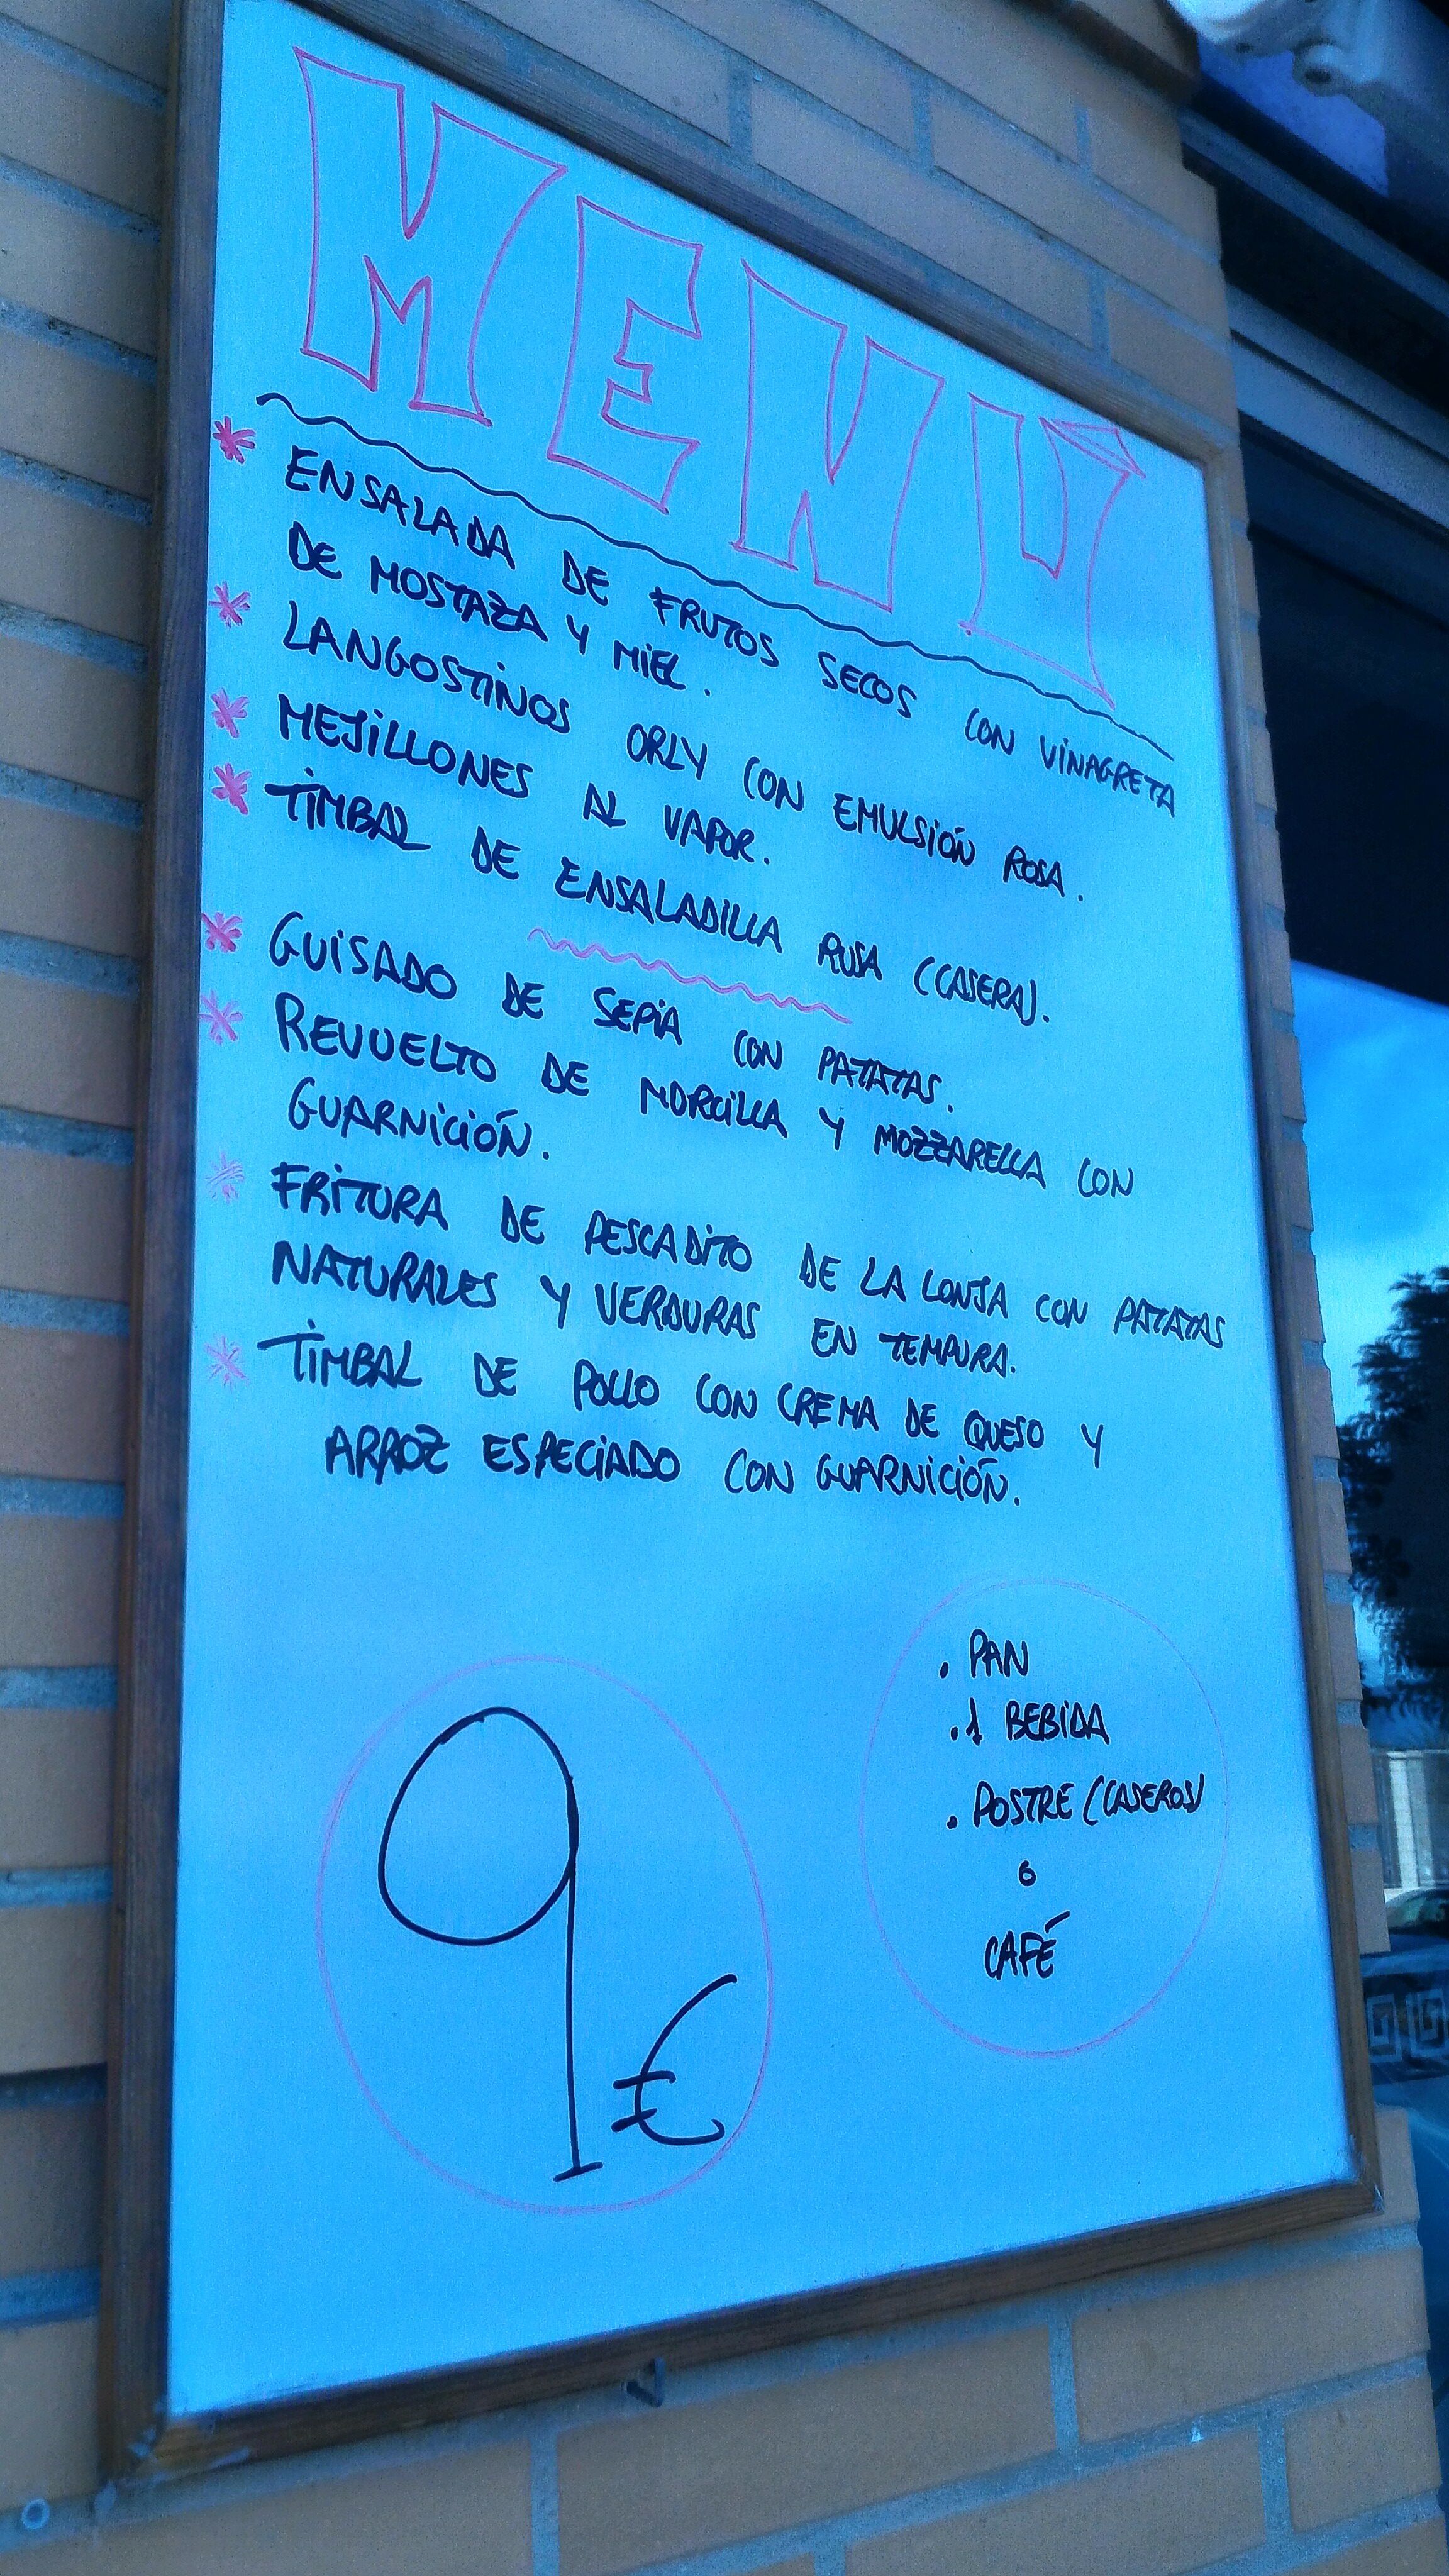 MENÚ
* ENSALADA DE FRUTOS SECOS CON VINAGRETA
DE MOSTAZA Y MIEL.
* LANGOSTINOS ORLY CON EMULSIÓN ROSA.
* MEJILLONES AL VAPOR.
* TIMBAL DE ENSALADILLA RUSA (CASERA).
* GUISADO DE SEPIA CON PATATAS.
* REVUELTO DE MORCILLA Y MOZZARELLA CON
GUARNICIÓN.
* FRITURA DE PESCADITO DE LA LONJA CON PATATAS
NATURALES Y VERDURAS EN TEMPURA.
* TIMBAL DE POLLO CON CREMA DE QUESO Y
ARROZ ESPECIADO CON GUARNICIÓN.
9€
. PAN
. 1 BEBIDA
. POSTRE (CASEROS)
o
CAFÉ